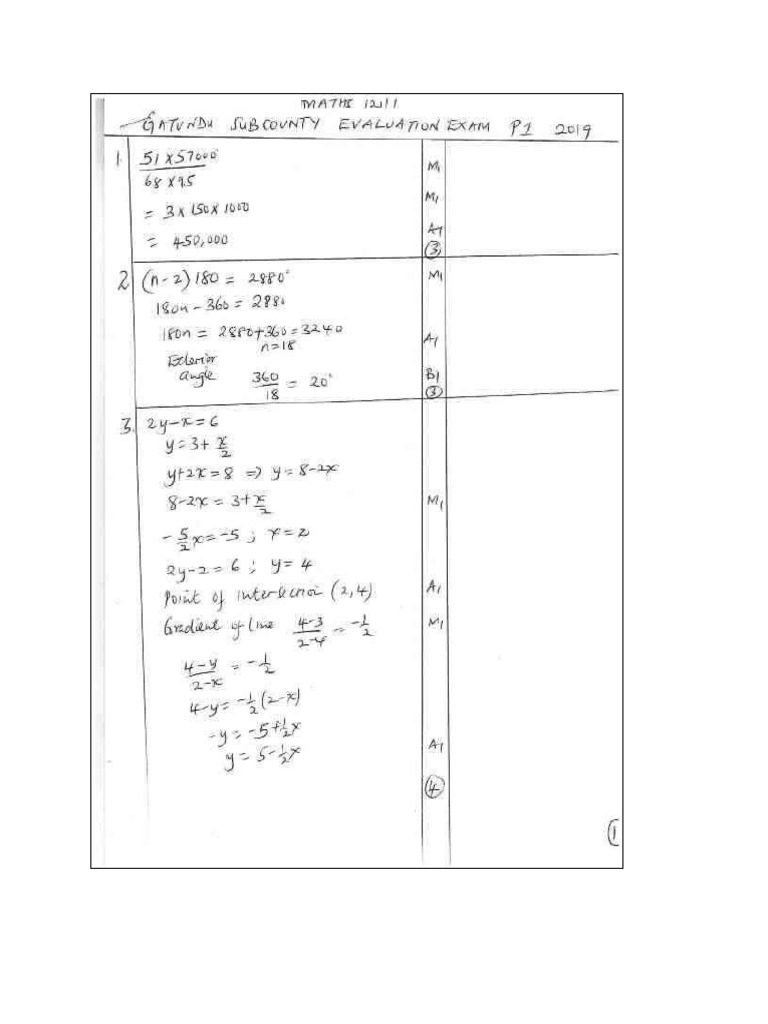 MATHS 121/1
GATUNDU SUBCOUNTY EVALUATION EXAM P1 2019
1. 51 x 57000 M1
68 x 95
= 3 x 150 x 1000 M1
= 450,000 A1
(3)
2 (n-2) 180 = 2880° M1
180n - 360 = 2880
180n = 2880+360 = 3240
n=18 A1
Exterior
angle 360/18 = 20° B1
(3)
3. 2y-x=6
y=3+ x/2
y+2x=8 => y=8-2x
8-2x = 3+x/2 M1
-5/2x=-5 ; x=2
2y-2=6 ; y=4
Point of intersection (2,4) A1
Gradient of line 4-3/2-4 = -1/2 M1
4-y/2-x = -1/2
4-y= -1/2(2-x)
-y= -5+1/2x
y= 5-1/2x A1
(4)
(1